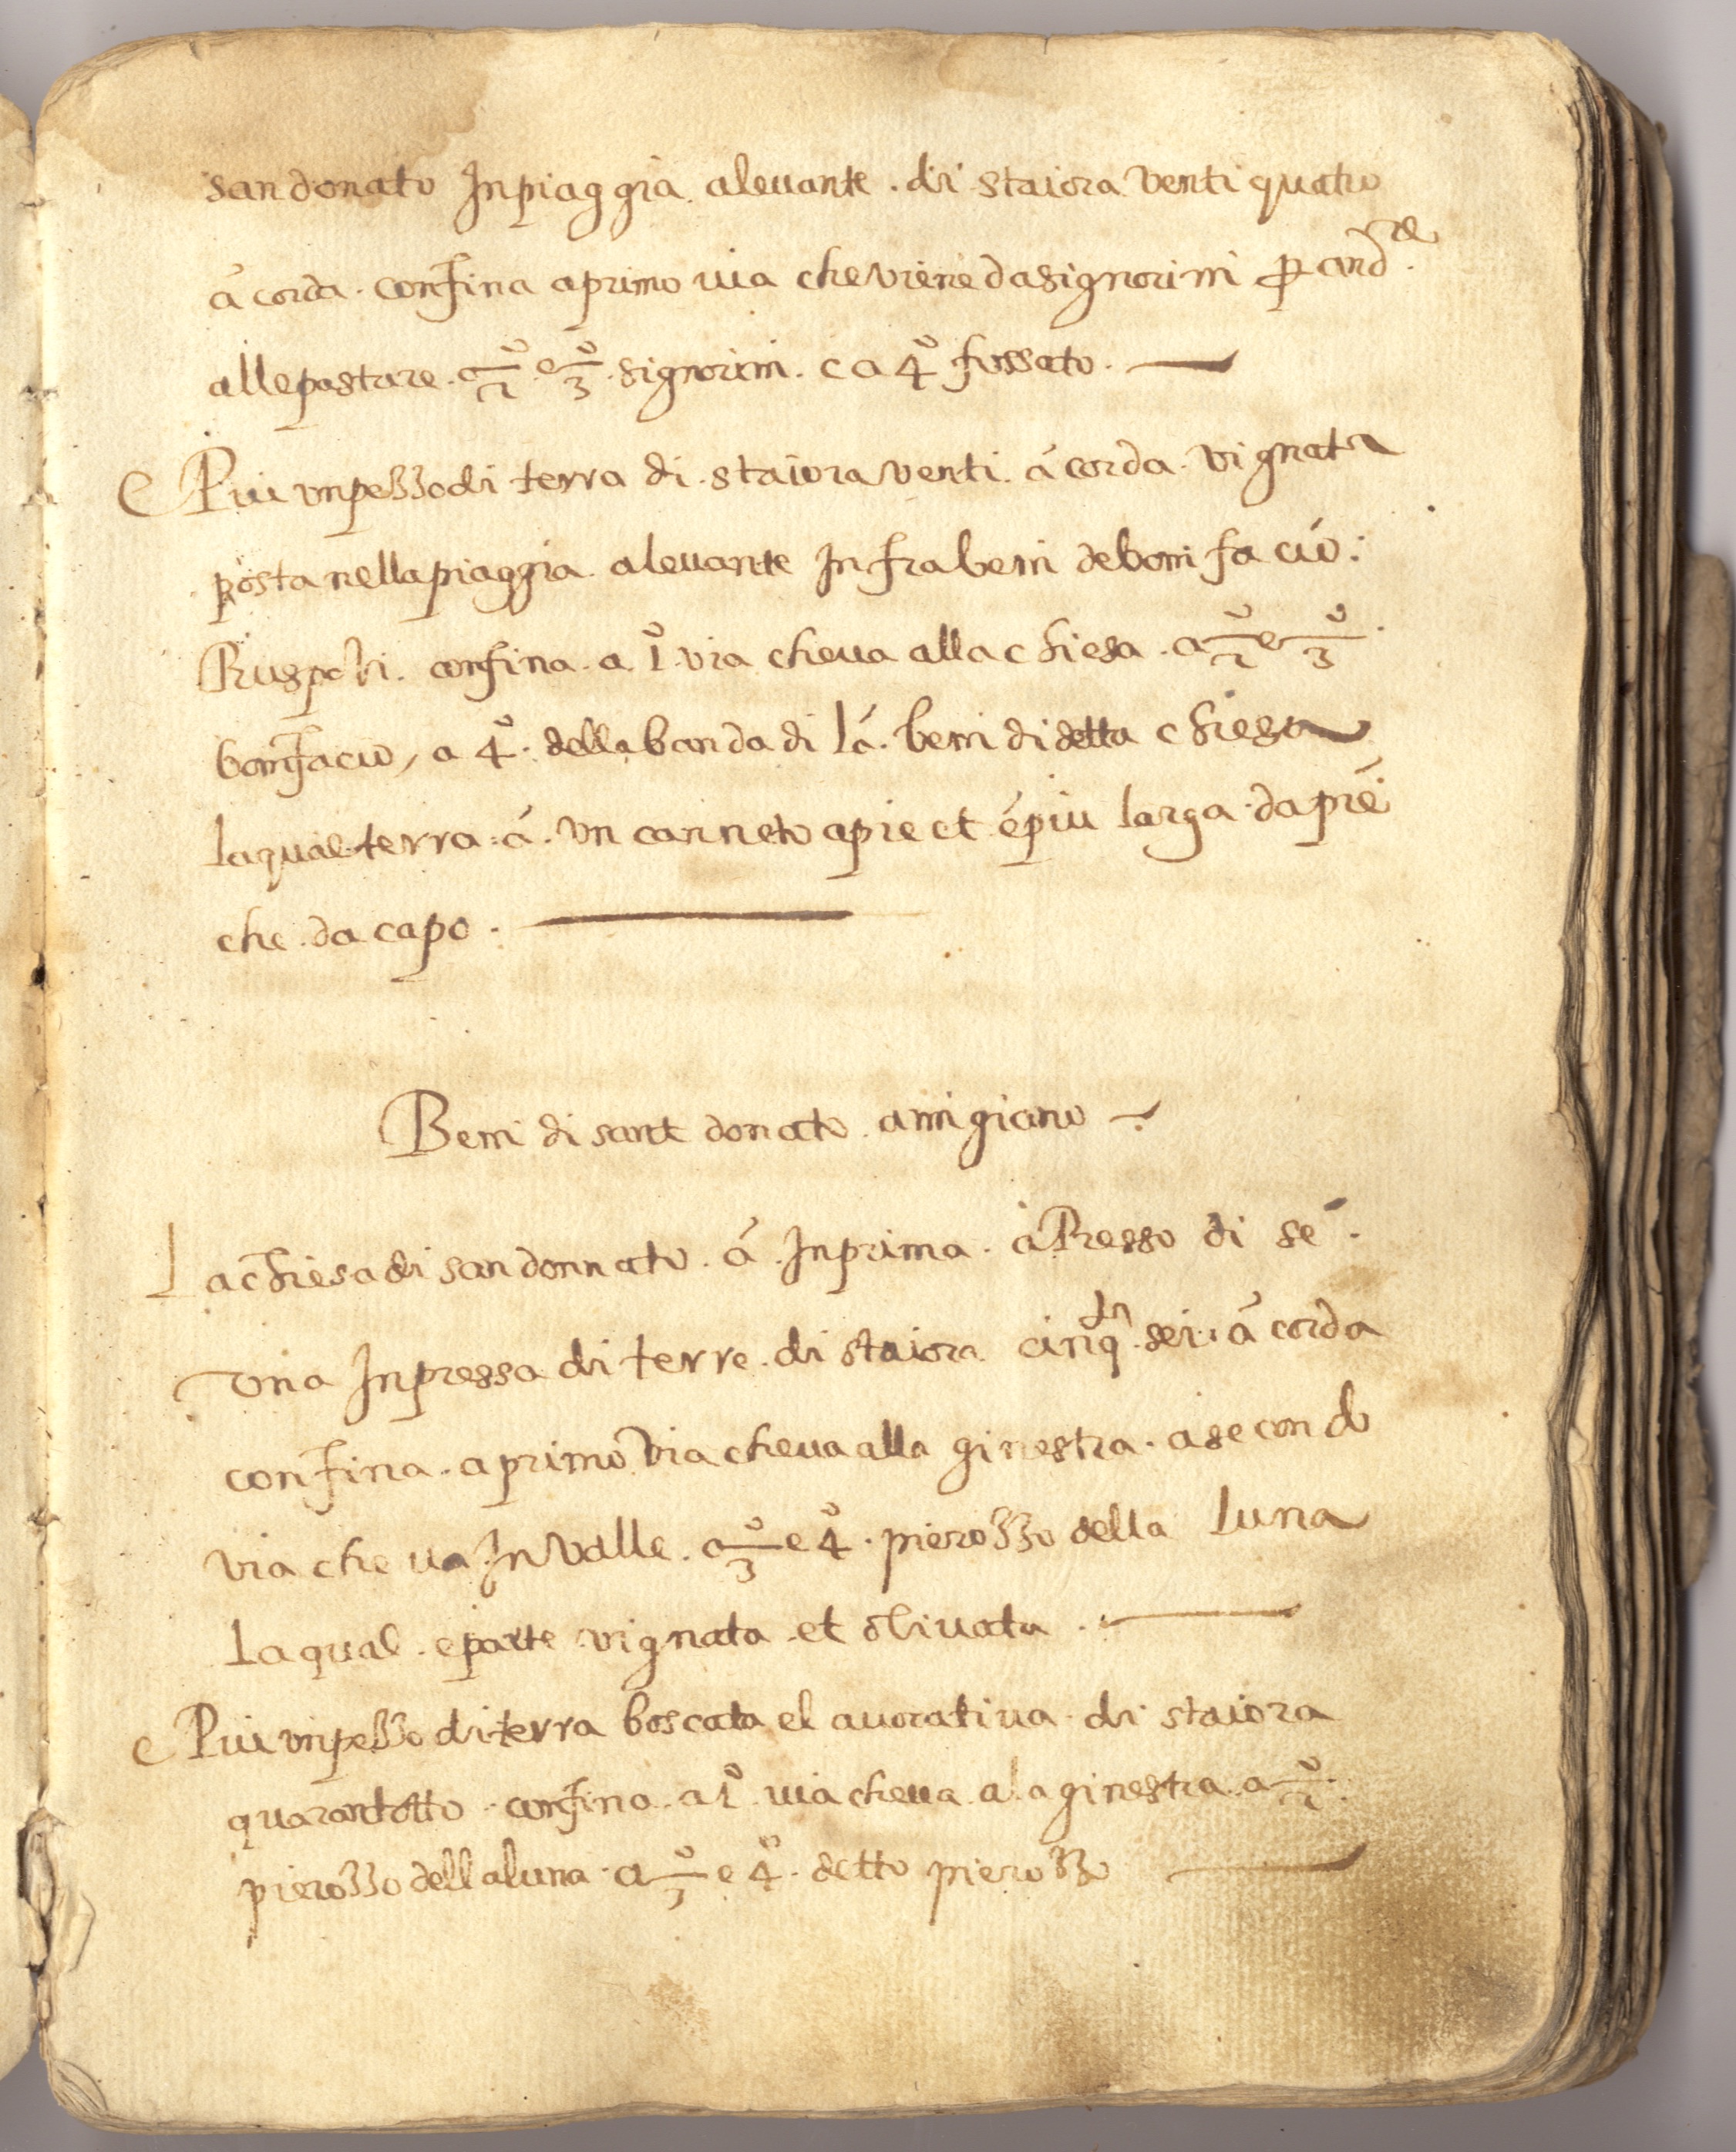 san donato Inpiaggia alevante . di staiora venti quatro
á corda . confina a primo via che viene da signorini p and.re
alle pasture . a 2º e 3º . signorini . e a 4º fossato .
E Piu un pezzo di terra di . staiora venti . á corda . vignata
posta nella piaggia alevante In fra beni de boni fa cio :
Ruspoli . confina . a 1º via che va alla chiesa . a 2º e 3º .
bonifacio , a 4º . della banda di lá . beni di detta chiesa
la qual terra : á . un canneto apie et é piu larga . da pié
che . da capo .
Beni di sant donato a nigiano
La chiesa di san donnato . á . Inprima . á Presso di sé .
Una Inpressa di terre . di staiora cinq. In sei . á corda
confina . a primo via che va alla ginestra . a secondo
via che va In Valle . a 3º e 4º . pierozzo della luna
la qual . e parte vignata . et olivata .
E Piu un pezzo di terra boscata e lavorativa . di staiora
quarantotto . confina . a 1º via che va a la ginestra . a 2º .
pierozzo della luna . a 3º e 4º . detto pierozzo